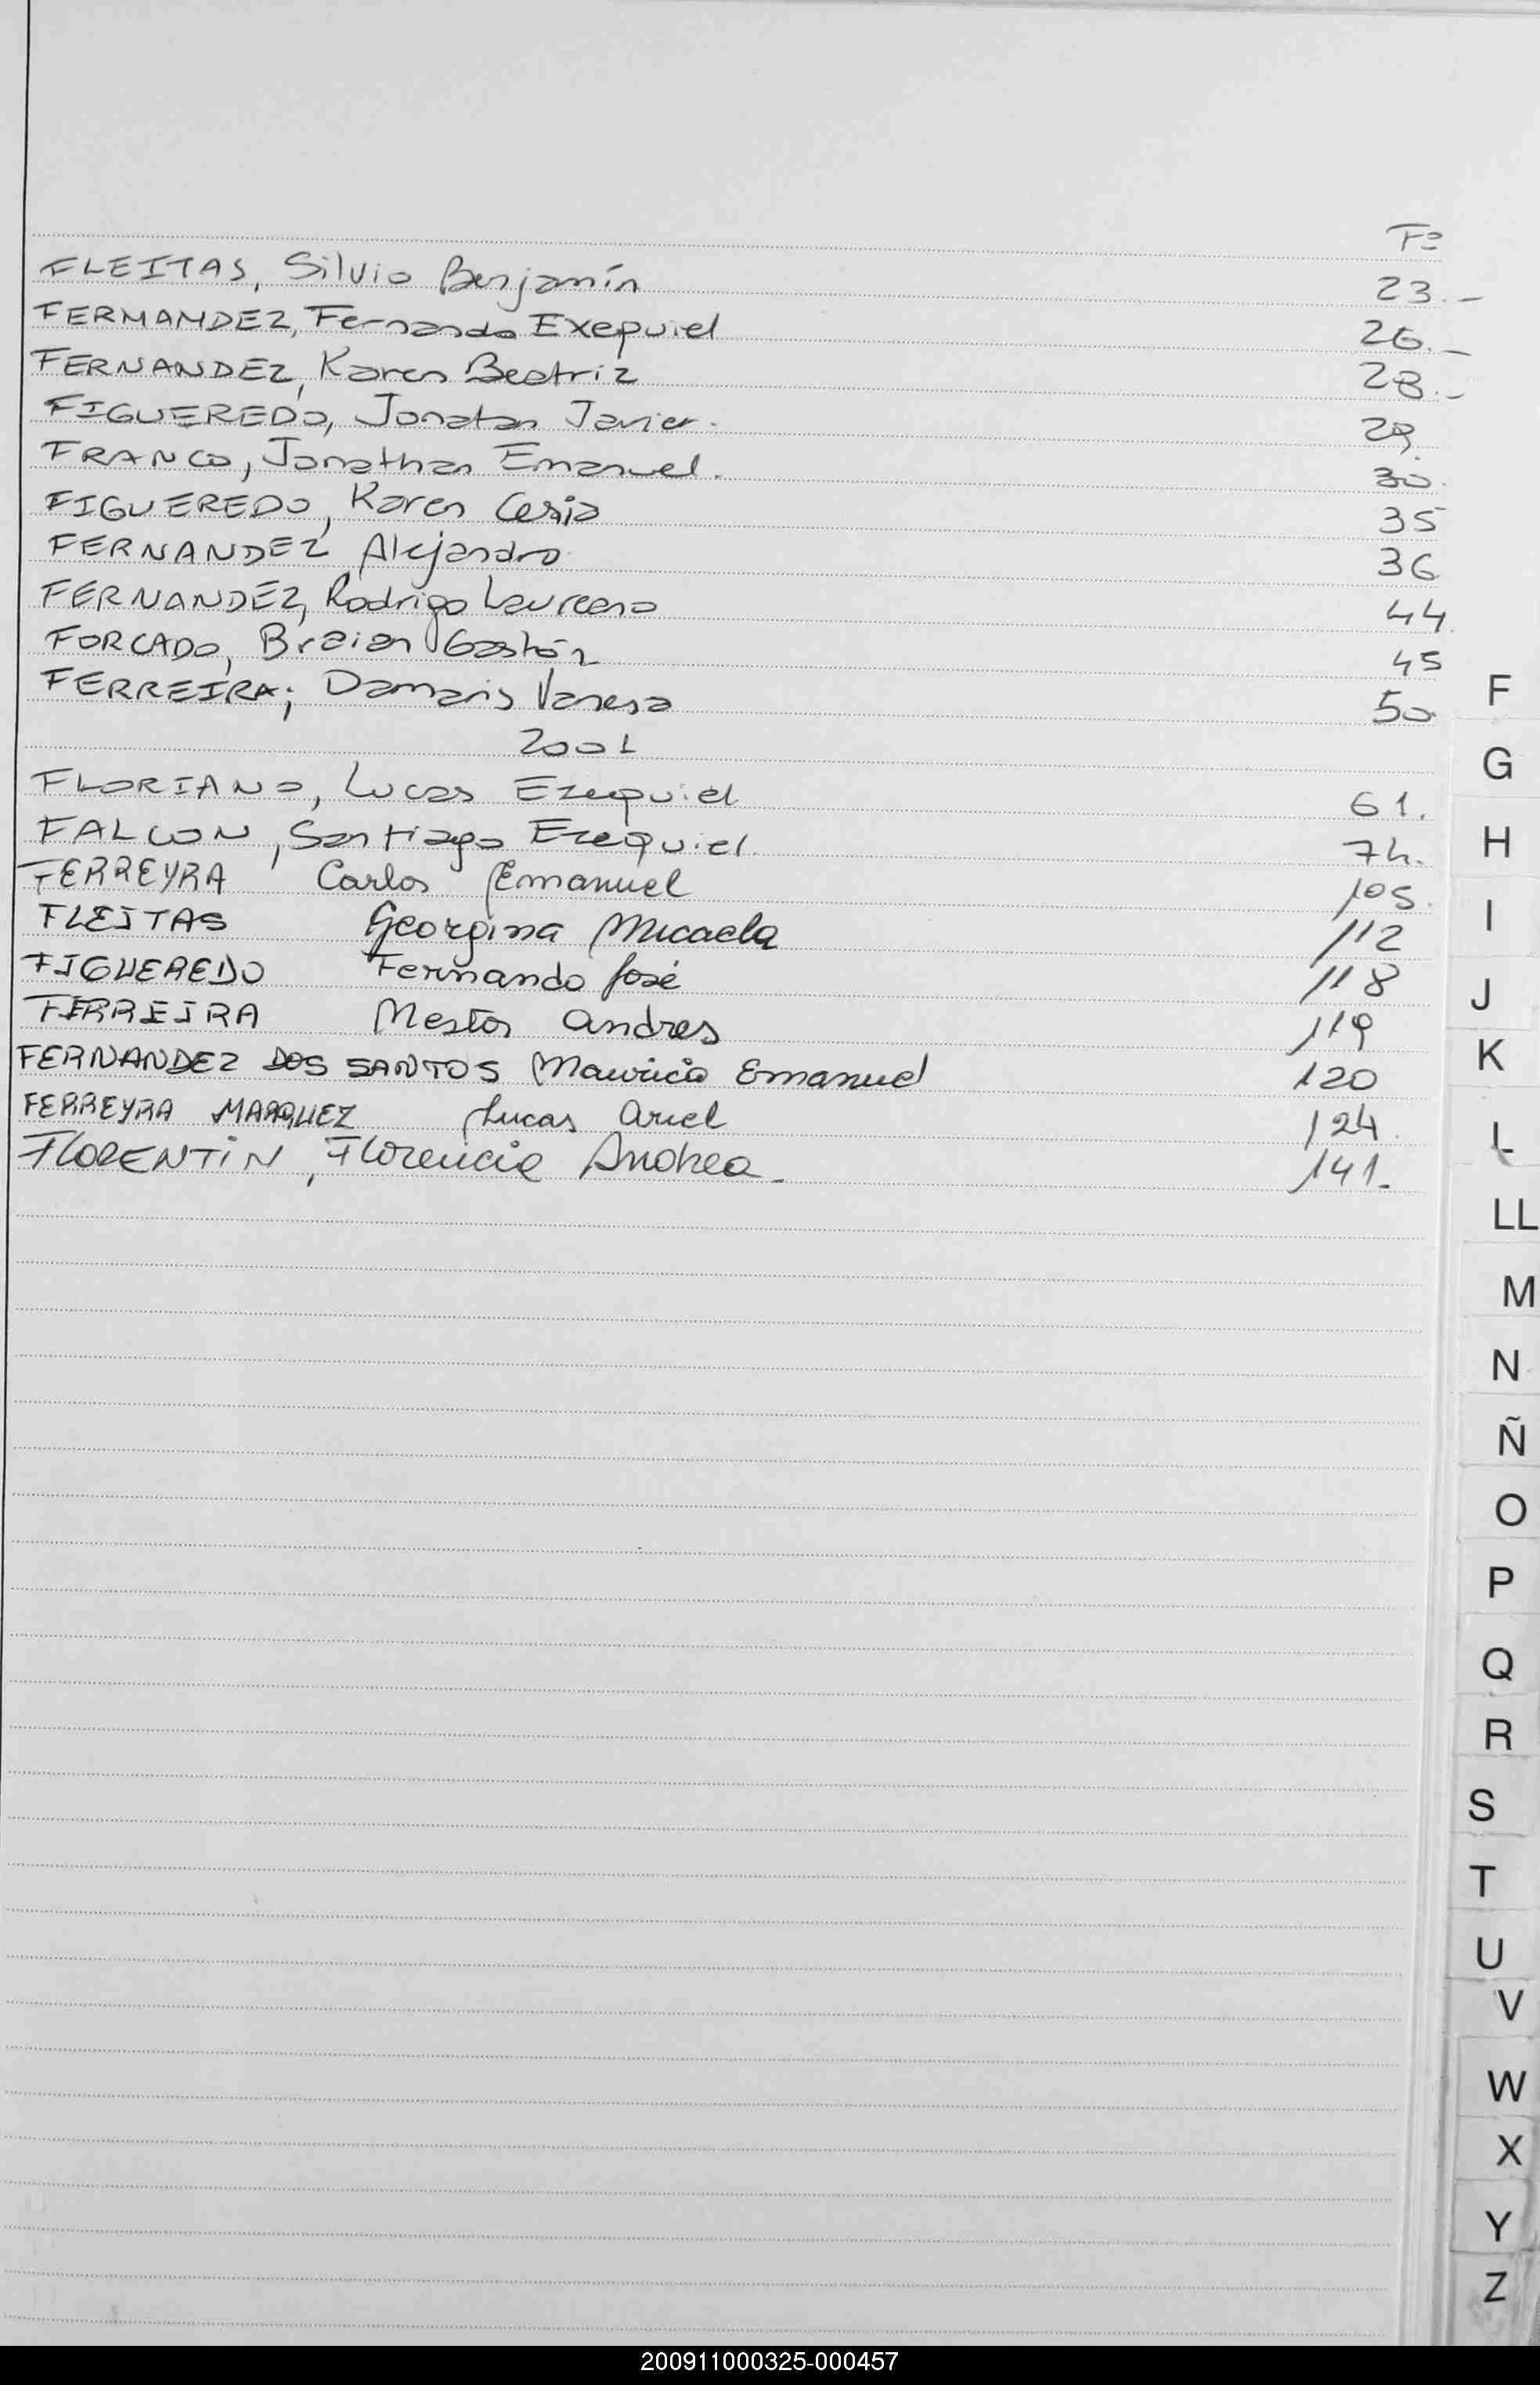 Fº
FLEITAS, Silvio Benjamín 23.-
FERMANDEZ, Fernando Exequiel 26.-
FERNANDEZ, Karen Beatriz 28.-
FIGUEREDO, Jonatan Javier. 29.
FRANCO, Jonathan Emanuel. 30.
FIGUEREDO, Karen Cesia 35
FERNANDEZ Alejandro 36
FERNANDEZ, Rodrigo Laureano 44
FORCADO, Braian Gastón 45
FERREIRA; Damaris Vanesa 50
2001
FLORIANO, Lucas Ezequiel 61.
FALCON, Santiago Ezequiel. 74.
FERREYRA Carlos Emanuel 105.
FLEITAS Georgina Micaela 112
FIGUEREDO Fernando José 118
FERREIRA Nestor Andres 119
FERNANDEZ DOS SANTOS Mauricio Emanuel 120
FERREYRA MARQUEZ Lucas Ariel 124
FLORENTIN, Florencia Andrea. 141.
F
G
H
I
J
K
L
LL
M
N
Ñ
O
P
Q
R
S
T
U
V
W
X
Y
Z
200911000325-000457